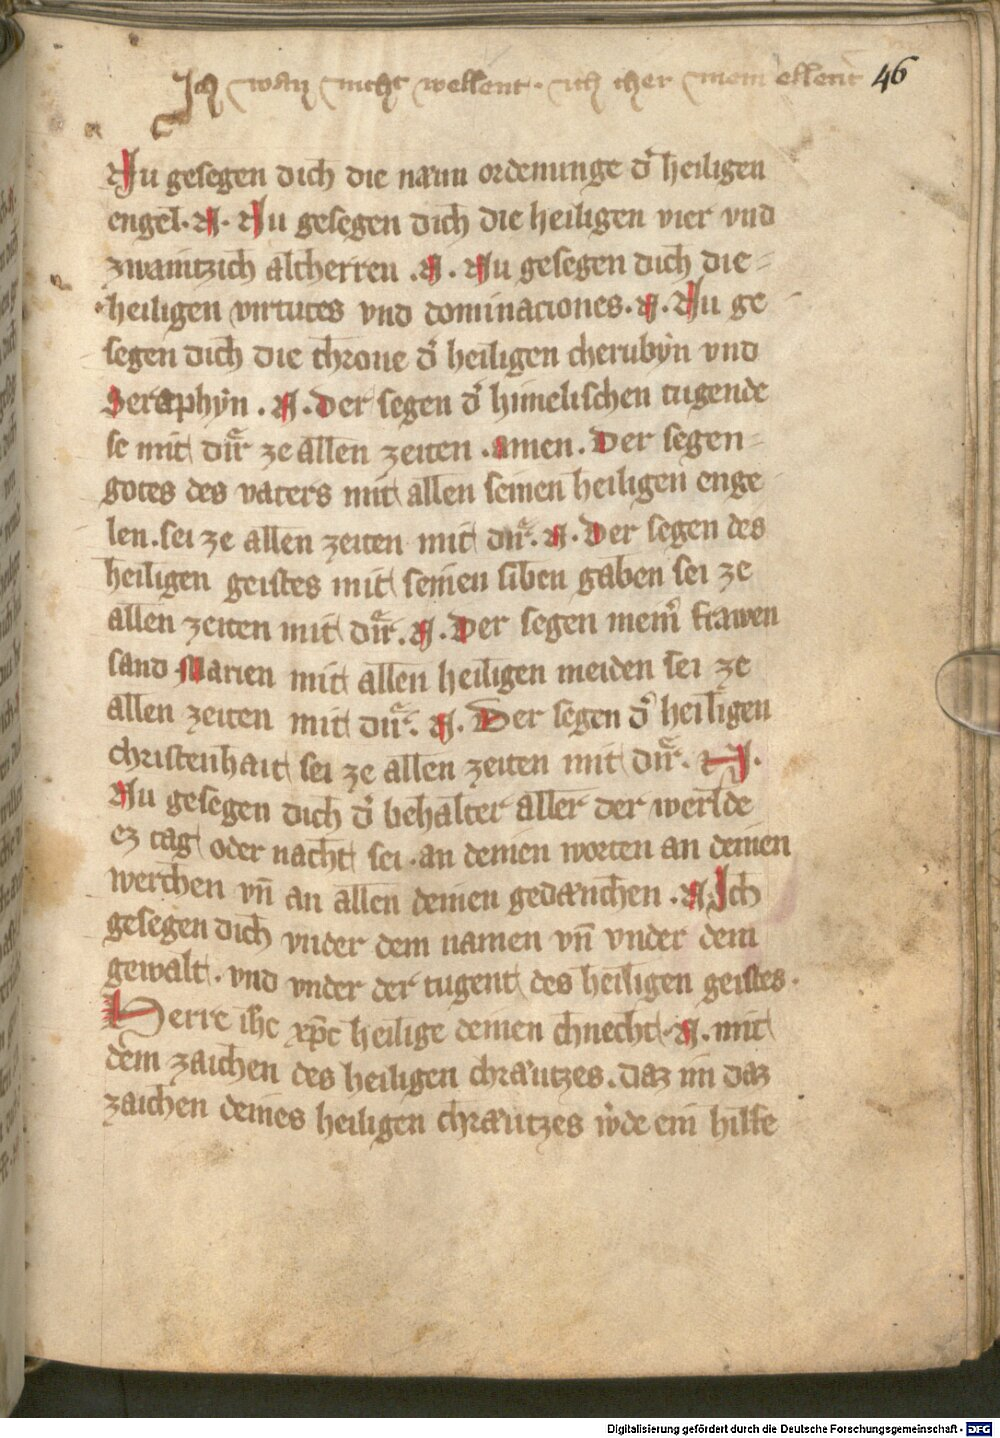 Ich way nicht wellent · ich cher mein ellent 46
Nu gesegen dich die næun ordenunge d̕ heiligen
engel · N · Nu gesegen dich die heiligen vier vnd
zwaintzich altherren · N · Nu gesegen dich die=
heiligen virtutes vnd dominaciones · N · Nu ge
segen dich die throne d̕ heiligen cherubẏn vnd
Seraphẏn · N · Der segen d̕ himelischen tugende
se mit dir ze allen zeiten · amen · Der segen=
gotes des vaters mit allen seinen heiligen enge
len · sei ze allen zeiten mit dir · N · Der segen des
heiligen geistes mit seinen siben gaben sei ze
allen zeiten mit dir · N · Der segen mein̕ frawen
sand Marien mit allen heiligen meiden sei ze
allen zeiten mit dir · N · Der segen d̕ heiligen
christenhait sei ze allen zeiten mit dir · N ·
Nu gesegen dich d̕ behalter aller der werlde
ez tag oder nacht sei · an deinen worten an deinen
werchen vn̄ an allen deinen gedænchen · N · Ich
gesegen dich vnder dem namen vn̄ vnder dem
gewalt · vnd vnder der tugent des heiligen geistes ·
Herre ihc xp̄c heilige deinen chnecht · N · mit
dem zaichen des heiligen chræutzes · daz im daz
zaichen deines heiligen chræutzes w̕de ein hilfe
Digitalisierung gefördert durch die Deutsche Forschungsgemeinschaft - DFG